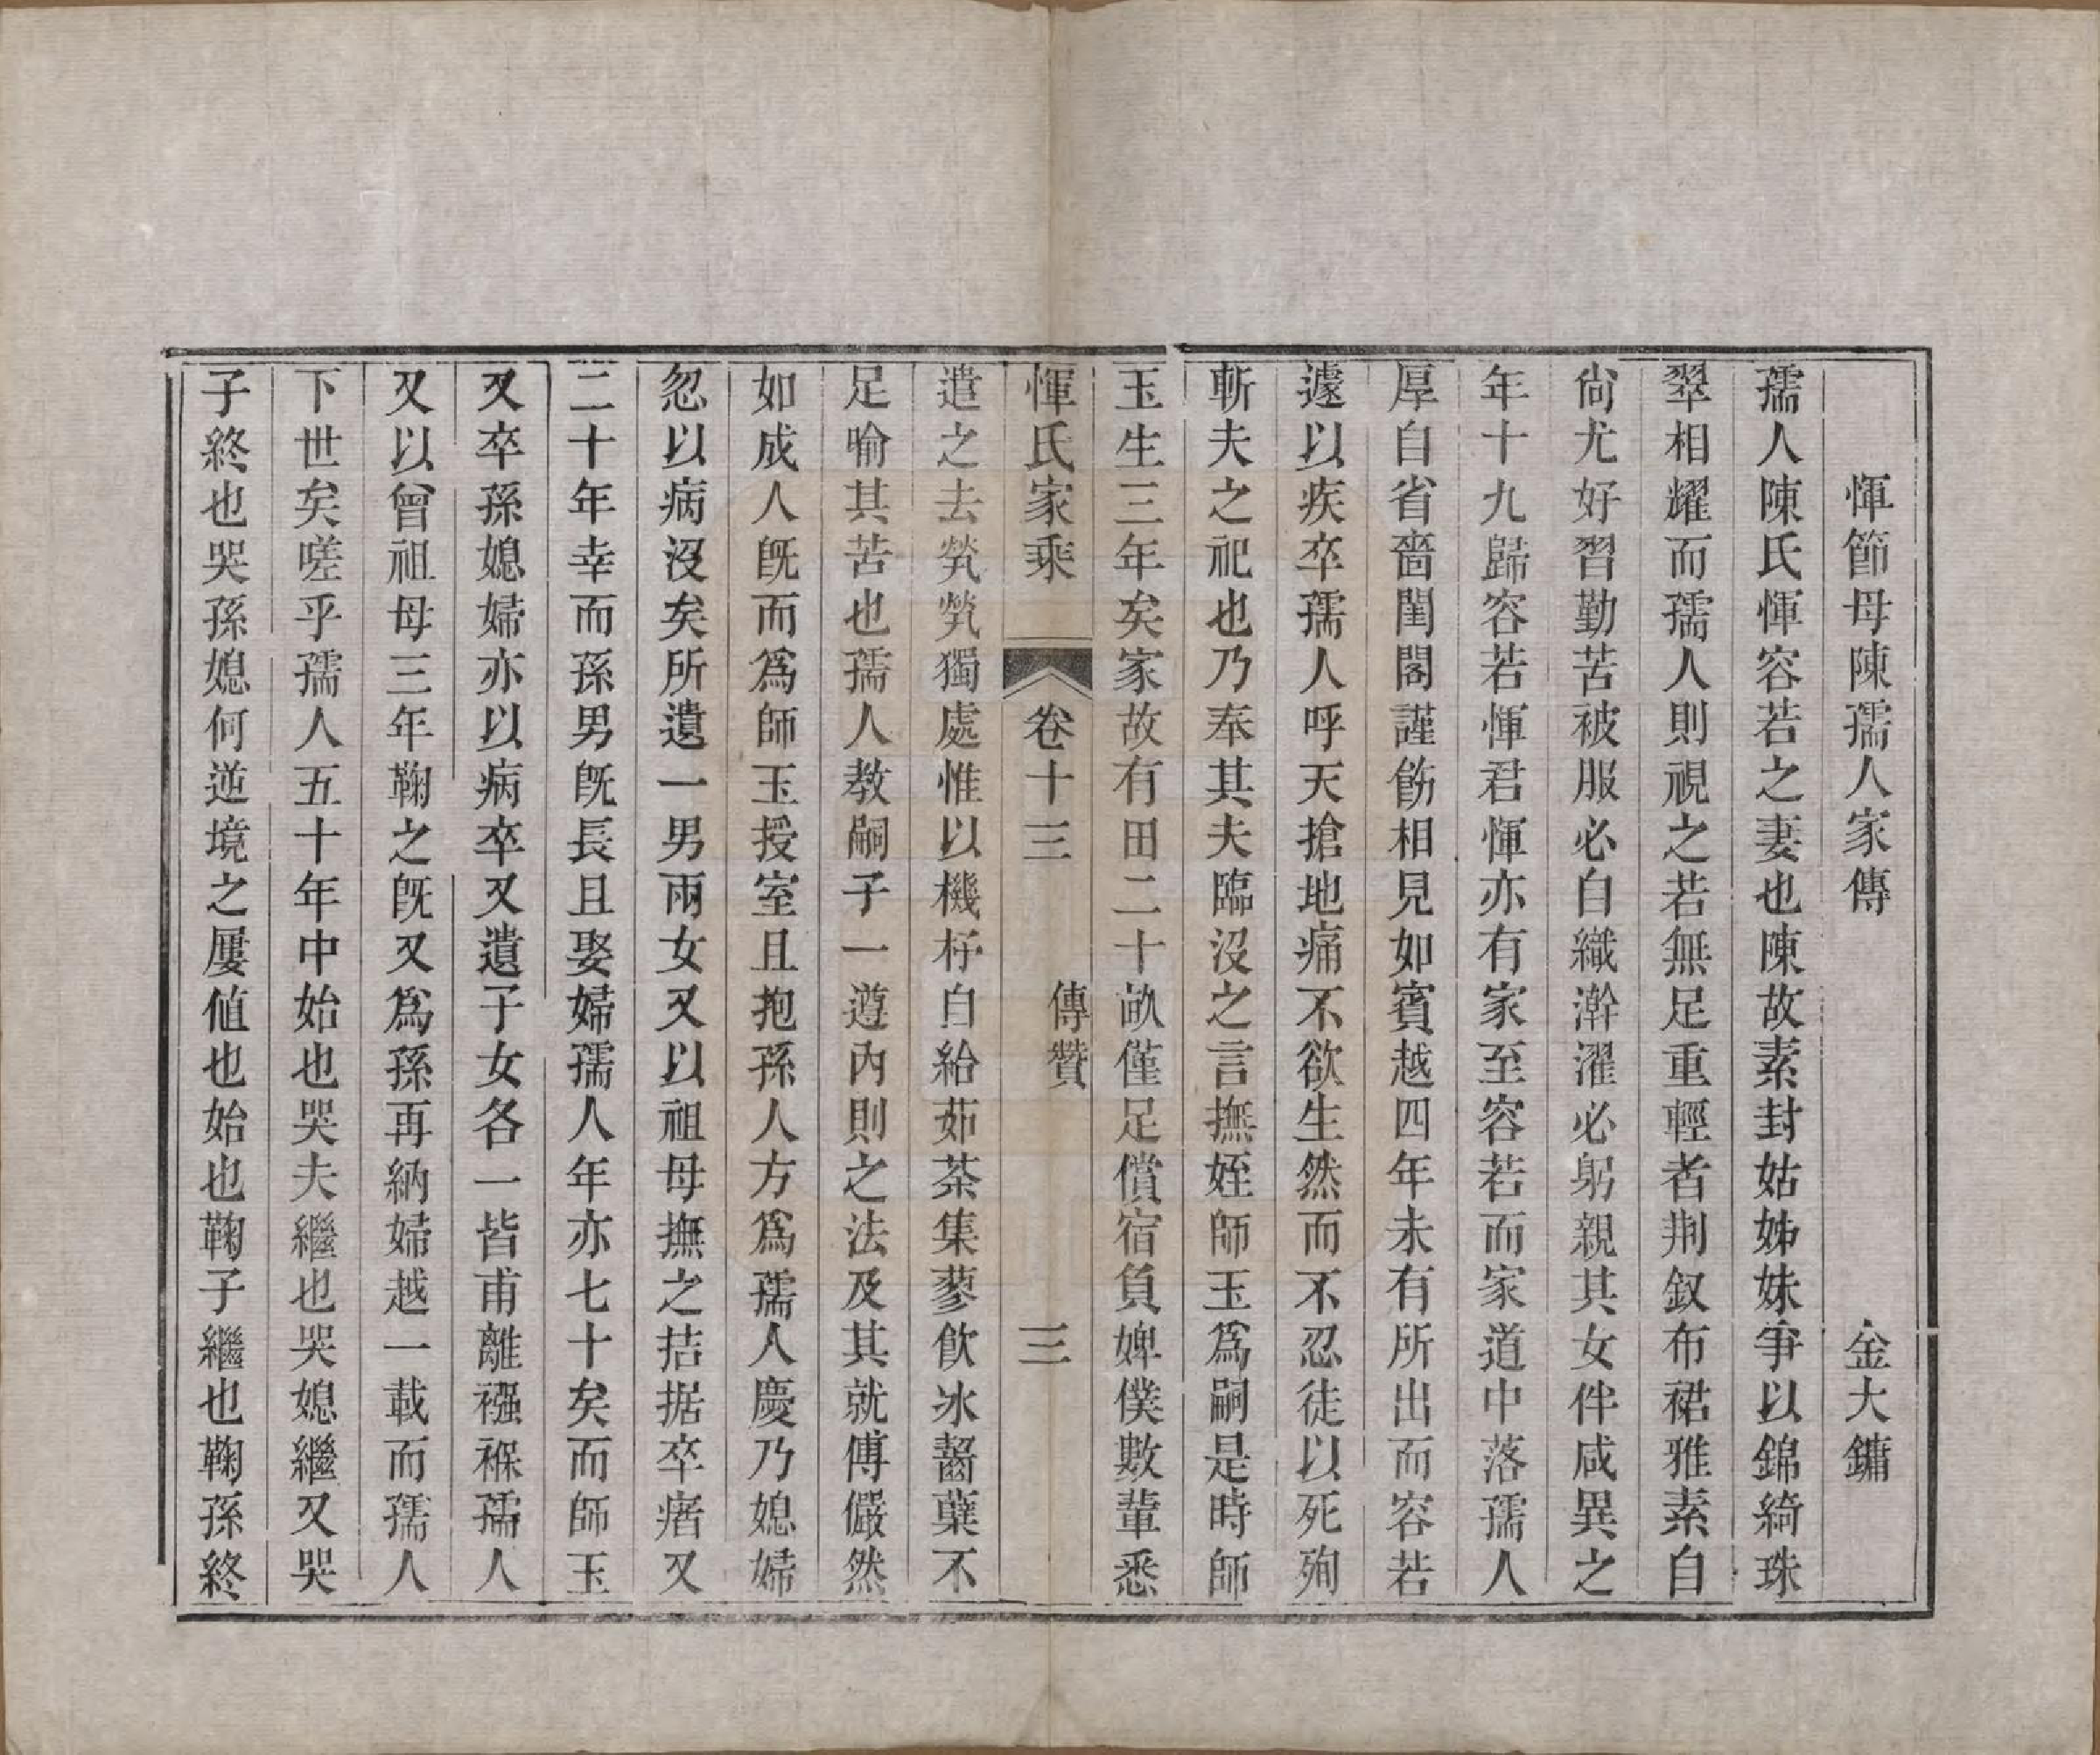 惲節母陳孺人家傳　金大鏞
孺人陳氏惲容若之妻也陳故素封姑姊妹爭以錦綺珠
翠相耀而孺人則視之若無足重輕者荆釵布裙雅素自
尚尤好習勤苦被服必自織澣濯必躬親其女伴咸異之
年十九歸容若惲君惲亦有家至容若而家道中落孺人
厚自省嗇閨閣謹飭相見如賓越四年未有所出而容若
遽以疾卒孺人呼天搶地痛不欲生然而不忍徒以死殉
斬夫之祀也乃奉其夫臨沒之言撫姪師玉為嗣是時師
玉生三年矣家故有田二十畝僅足償宿負婢僕數輩悉
惲氏家乘　卷十三　傳贊　三
遣之去煢煢獨處惟以機杼自給茹荼集蓼飲冰齧蘗不
足喻其苦也孺人教嗣子一遵內則之法及其就傅儼然
如成人既而為師玉授室且抱孫人方為孺人慶乃媳婦
忽以病沒矣所遺一男兩女又以祖母撫之拮据卒瘏又
二十年幸而孫男既長且娶婦孺人年亦七十矣而師玉
又卒孫媳婦亦以病卒又遺子女各一皆甫離襁褓孺人
又以曾祖母三年鞠之既又為孫再納婦越一載而孺人
下世矣嗟乎孺人五十年中始也哭夫繼也哭媳繼又哭
子終也哭孫媳何逆境之屢值也始也鞠子繼也鞠孫終